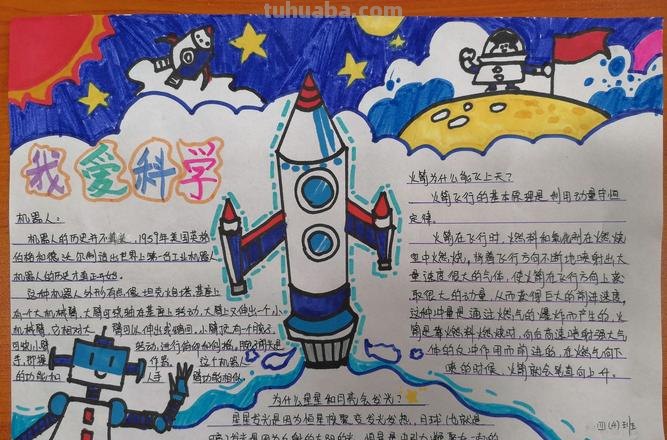 tuhuaba.com
我爱科学
机器人:
机器人的历史并不算长,1959年美国英格
伯格和德沃尔制造出世界上第一台工业机器人
机器人的历史才真正开始。
这种机器人外形有点像坦克炮塔,基座上
有一个大机械臂,大臂可绕轴在基座上转动,大臂上又伸出一个小
机械臂,它相对大 臂可以伸出或缩回,小臂顶有一个腕子
可绕小臂 转动,进行俯仰和侧摇,腕子前头是
手,即操 作器。 这个机器人
的功能和 人手 臂功能相似
火箭为什么能飞上天?
火箭飞行的基本原理是利用动量守恒
定律。
火箭在飞行时,燃料和氧化剂在燃烧
室中燃烧,
量速度很大的气体,使火箭在飞行方向上获
取很大的动量,从而获得巨大的前进速度,
这种冲量是通过燃气的爆炸而产生的,火
箭是靠燃料燃烧时,向后高速喷射强大气
体的反冲作用而前进的,在燃气向下
喷的时候,火箭就会笔直向上升。
为什么星星和月亮会发光?
星星发光是因为恒星核聚变发光发热,月球